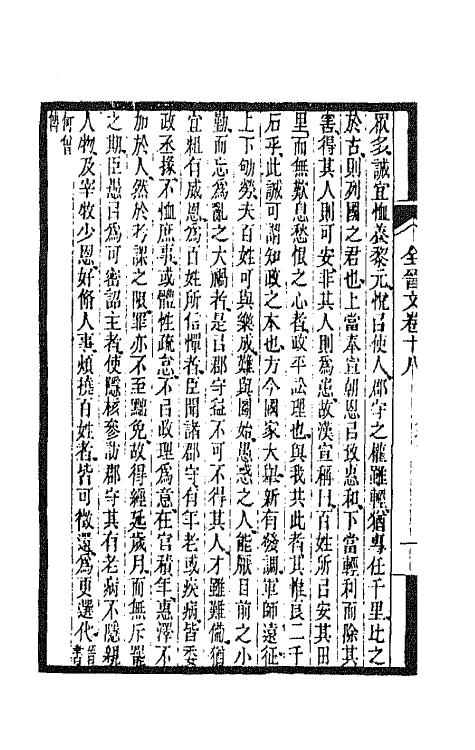 眾多誠宜恤養黎元悅㠯使人郡守之權雖輕猶專任千里比之
於古則列國之君也上當奉宣朝恩㠯致惠和下當輕利而除其
害得其人則可安非其人則爲患故漢宣稱曰百姓所㠯安其田
里而無歎息愁恨之心者政平訟理也與我共此者其惟良二千
石乎此誠可謂知政之本也方今國家大舉新有發調軍師遠征
上下劬勞夫百姓可與樂成難與圖始愚惑之人能厭目前之小
勤而忘爲亂之大禍者是㠯郡守益不可不得其人才雖難備猶
宜粗有威恩爲百姓所信憚者臣聞諸郡守有年老或疾病皆委
政丞掾不恤庶事或體性疏怠不㠯政理爲意在官積年惠澤不
加於人然於考課之限罪亦不至黜免故得經延歲月而無斥罷
之期臣愚㠯爲可密詔主者使隱核參訪郡守其有老病不隱親
人物及宰牧少恩好脩人事煩撓百姓者皆可徵還爲更選代 晉書
何曾
傳
全晉文卷十八